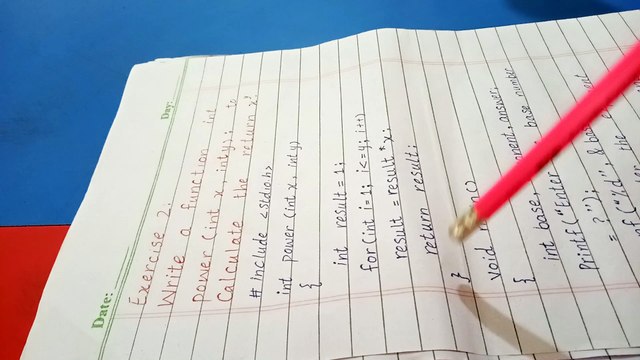 Date:
Day:
Exercise 2:
Write a function int
power (int x, int y); to
Calculate the return x^y
# include <stdio.h>
int power (int x, int y)
{
int result = 1;
for (int i = 1; i <= y; i++)
result = result * x;
return result;
}
void
{
int base, answer,
printf ("Enter base number
= ? "); & base
("%d", the